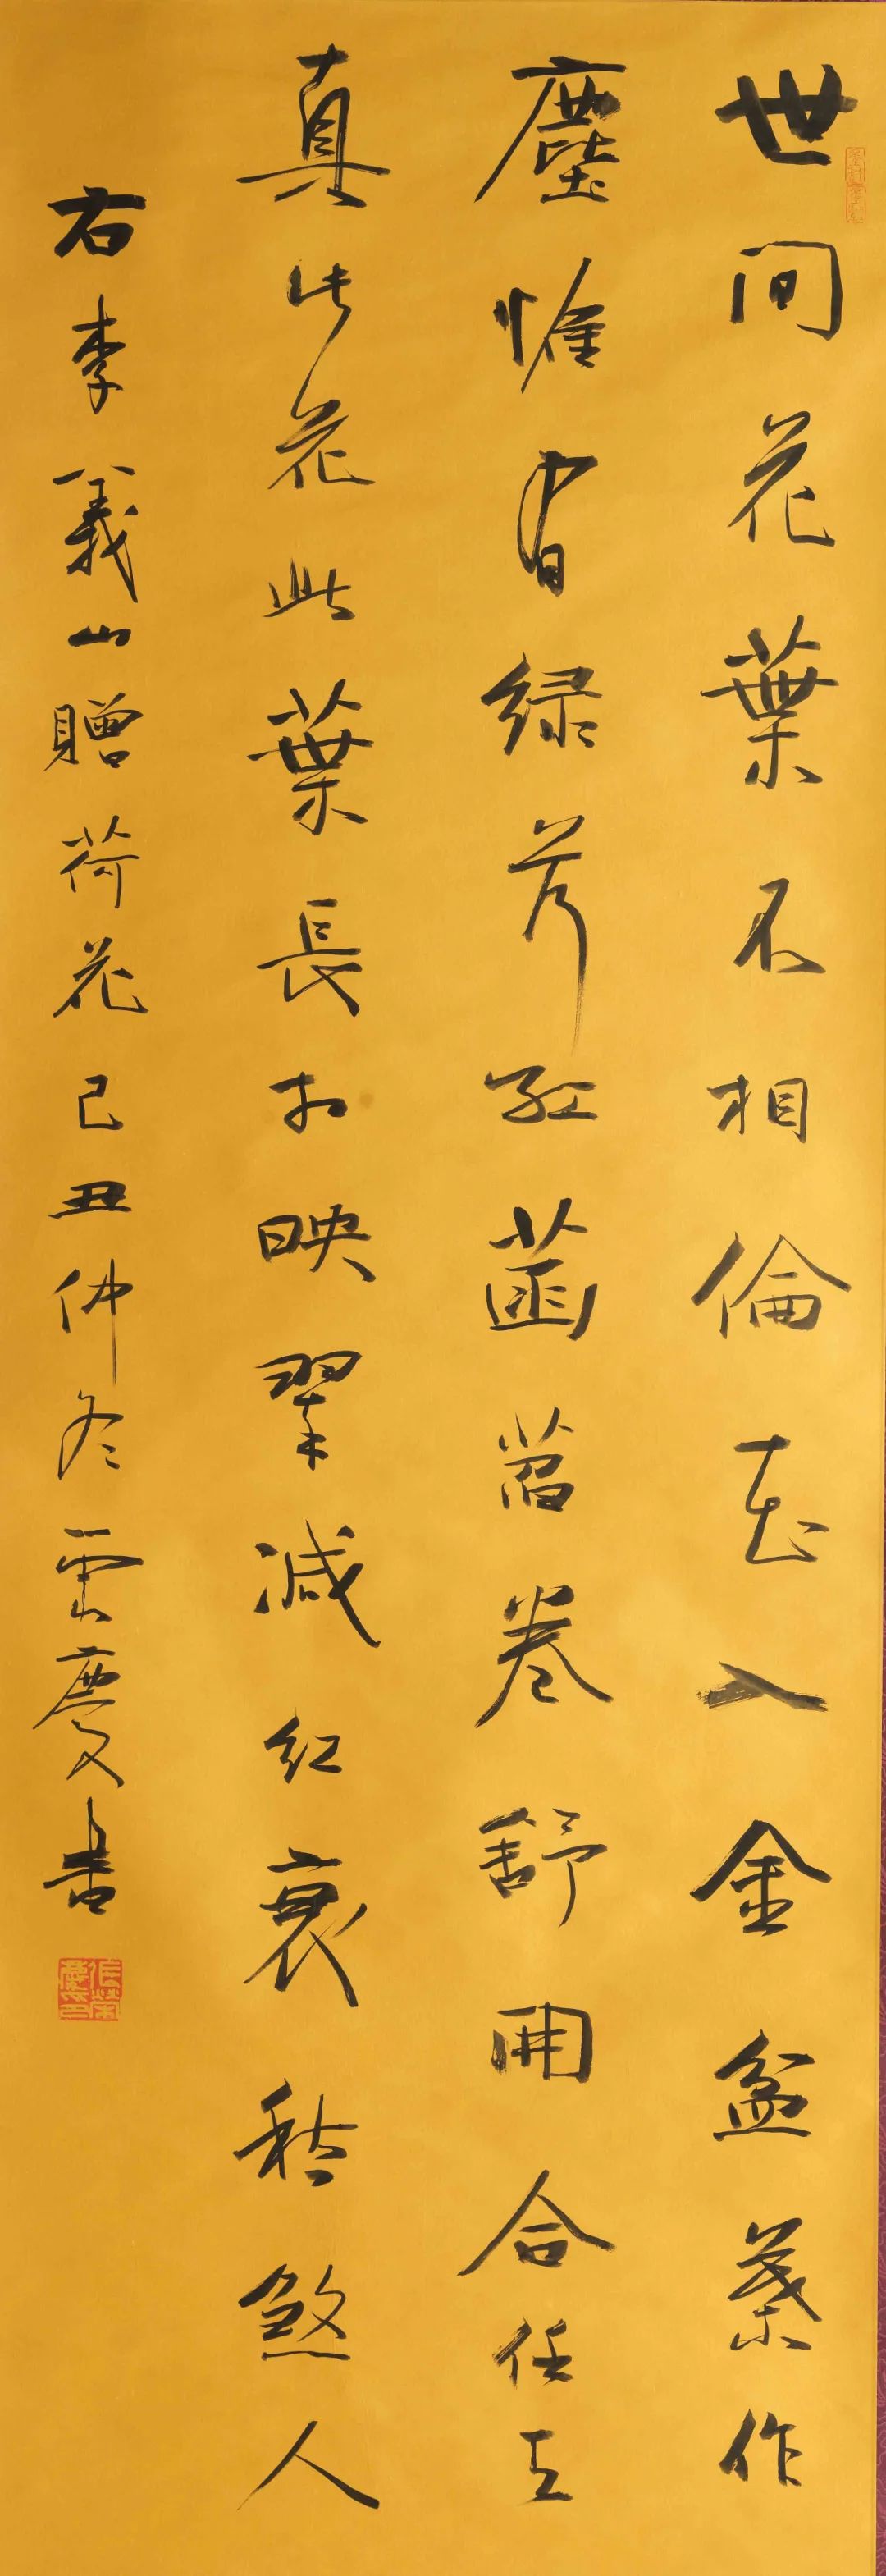 世間花葉不相倫花入金盆葉作
塵惟有绿荷紅菡萏卷舒開合任天
真此花此葉長相映翠减紅衰愁煞人
右李義山贈荷花己丑仲冬榮慶書
張榮慶印